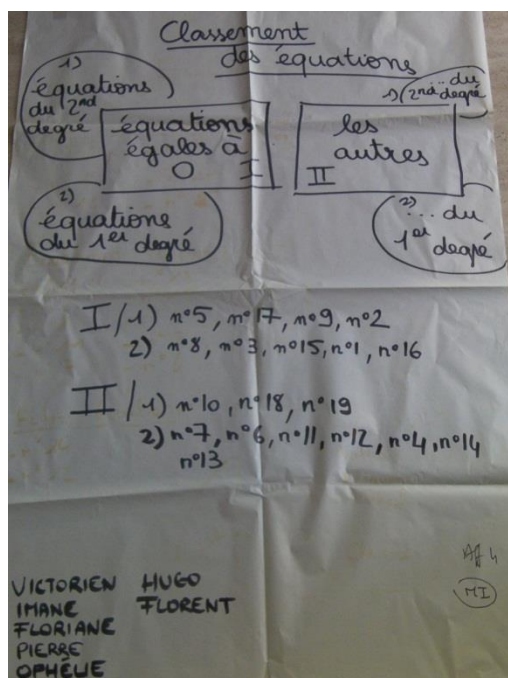 Classement
des équations
1)
équations
du 2nd
degré
équations
égales à
0 I
2)
équations
du 1er degré
1) 2nd... du
degré
les
autres
II
2) ... du
1er
degré
I/1) n°5, n°17, n°9, n°2
2) n°8, n°3, n°15, n°1, n°16
II/1) n°10, n°18, n°19
2) n°7, n°6, n°11, n°12, n°4, n°14
n°13
VICTORIEN HUGO
IMANE FLORENT
FLORIANE
PIERRE
OPHÉLIE
Aff 4
MI